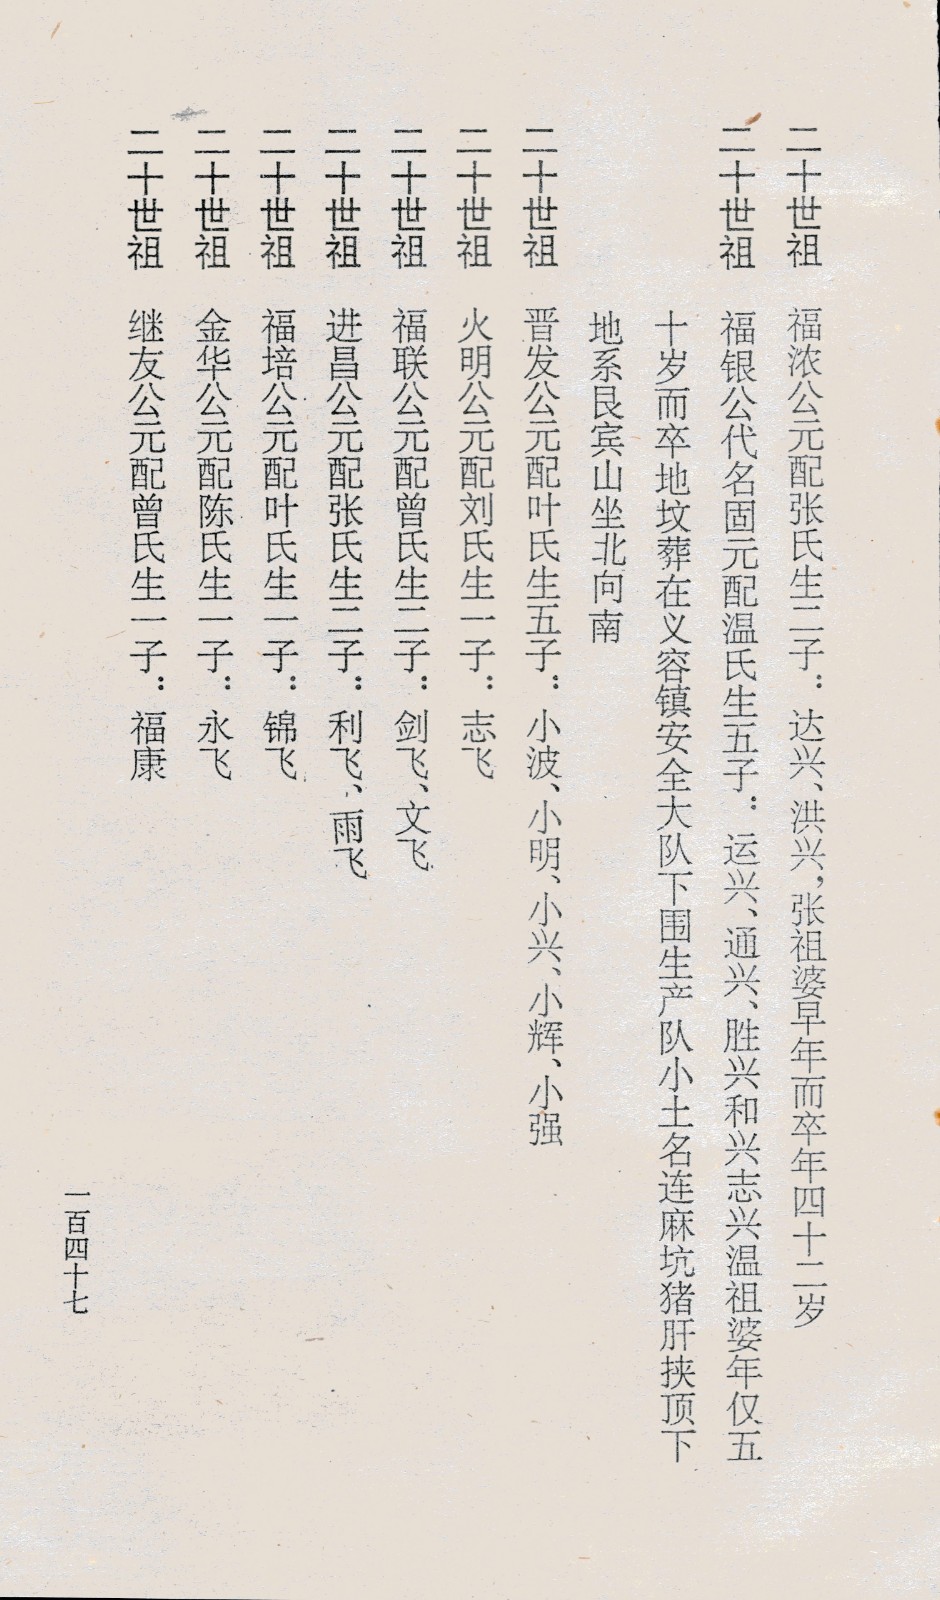 二十世祖 福浓公元配张氏生二子：达兴、洪兴，张祖婆早年而卒年四十二岁
二十世祖 福银公代名固元配温氏生五子：运兴、通兴、胜兴和兴志兴温祖婆年仅五
十岁而卒地坟葬在义容镇安全大队下围生产队小土名连麻坑猪肝挟顶下
地系艮宾山坐北向南
二十世祖 晋发公元配叶氏生五子：小波、小明、小兴、小辉、小强
二十世祖 火明公元配刘氏生一子：志飞
二十世祖 福联公元配曾氏生二子：剑飞、文飞
二十世祖 进昌公元配张氏生二子：利飞、雨飞
二十世祖 福培公元配叶氏生一子：锦飞
二十世祖 金华公元配陈氏生一子：永飞
二十世祖 继友公元配曾氏生一子：福康
一百四十七